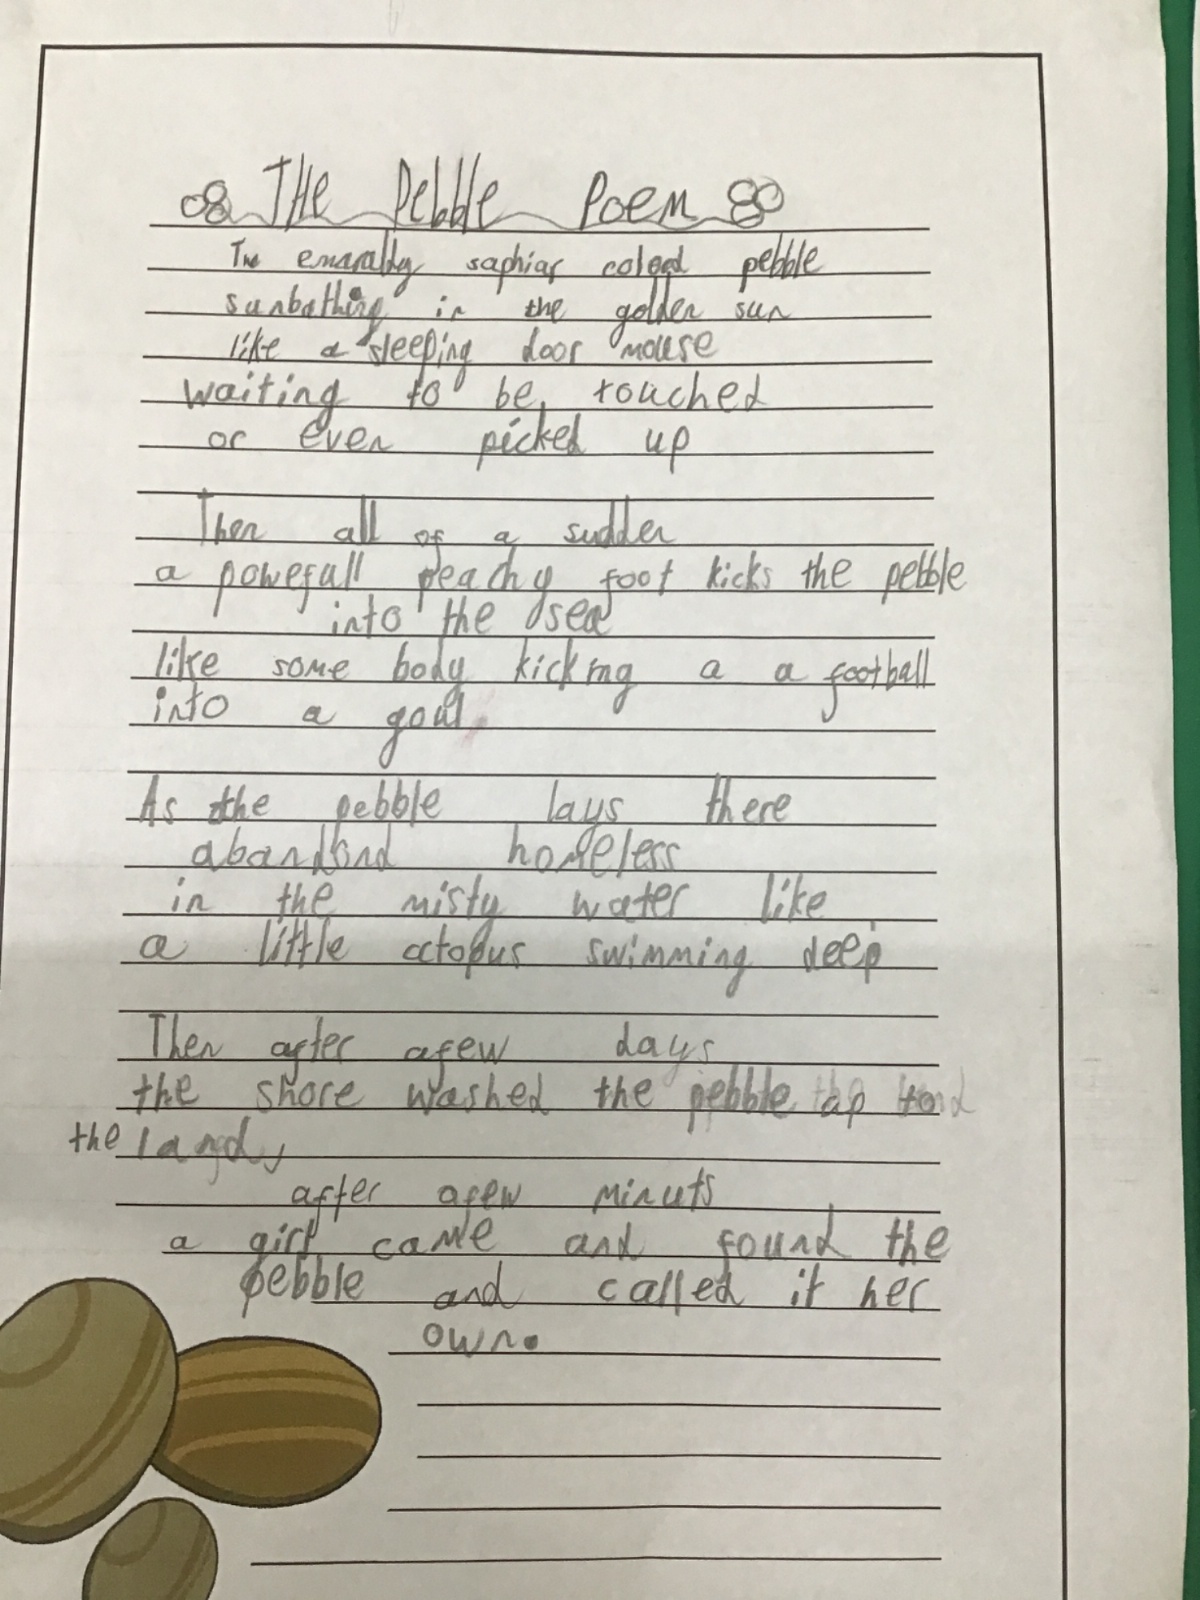 THe Pebble Poem
The emaraldy saphiar colord pebble
sunbathing in the golden sun
like a sleeping door mouse
waiting to be touched
or even picked up
Then all of a sudden
a powefull peachy foot kicks the pebble
into the sea
like some body kicking a a football
into a goal
As the pebble lays there
abandond homeless
in the misty water like
a little octopus swimming deep
Then after afew days
the shore washed the pebble ap to
the land,
after afew minuts
a girl came and found the
pebble and called it her
own.